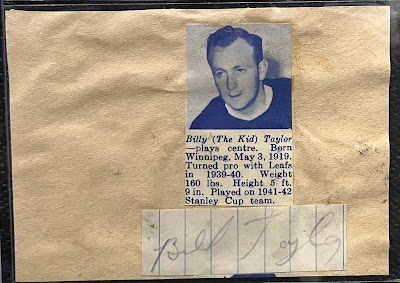 Billy (The Kid) Taylor
—plays centre. Born
Winnipeg, May 3, 1919.
Turned pro with Leafs
in 1939-40. Weight
160 lbs. Height 5 ft.
9 in. Played on 1941-42
Stanley Cup team.
Bill Taylor